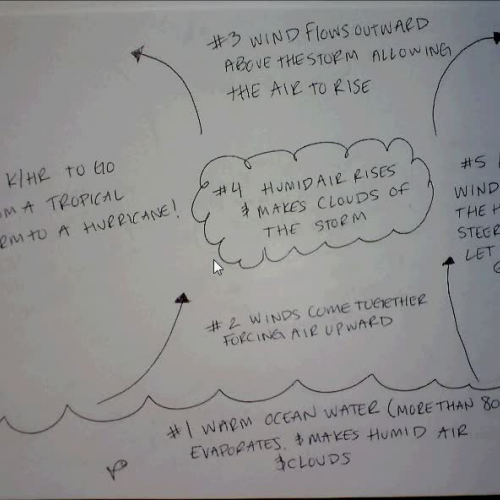 #3 WIND FLOWS OUTWARD
ABOVE THE STORM ALLOWING
THE AIR TO RISE
K/HR TO GO
A TROPICAL
TO A HURRICANE!
#4 HUMID AIR RISES
& MAKES CLOUDS OF
THE STORM
#5
WIND
THE
STEER
LET
#2 WINDS COME TOGETHER
FORCING AIR UPWARD
#1 WARM OCEAN WATER (MORE THAN 80
EVAPORATES, & MAKES HUMID AIR
& CLOUDS